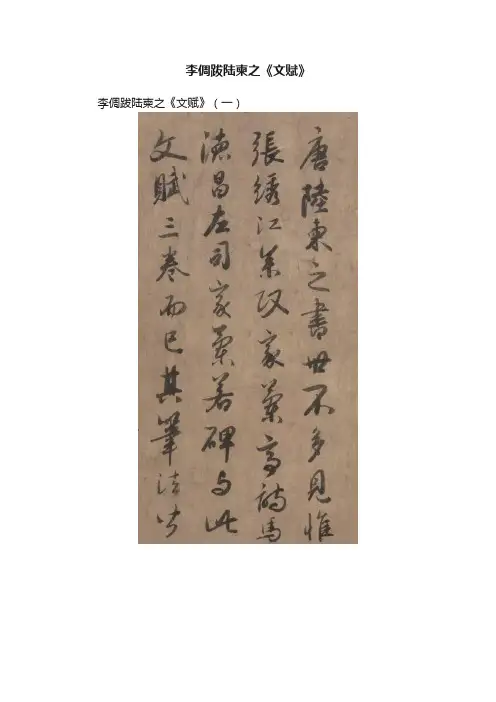 李倜跋陆柬之《文赋》
李倜跋陆柬之《文赋》（一）
唐陸柬之書世不多見惟
張綉江叅政家蘭亭詩馬
德昌左司家蘭若碑与此
文賦三卷而已其筆法皆